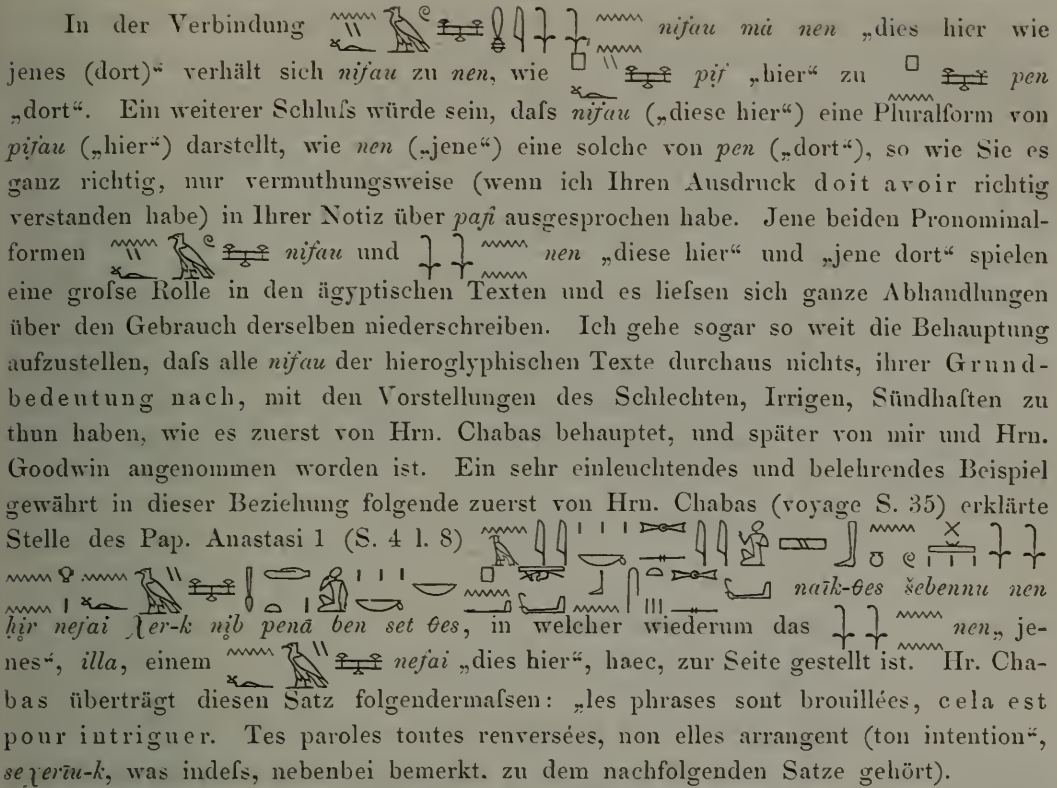 In der Verbindung nifau mà nen „dies hier wie
jenes (dort)“ verhält sich nifau zu nen, wie pif „hier“ zu pen
„dort“. Ein weiterer Schluſs würde sein, daſs nifau („diese hier“) eine Pluralform von
pifau („hier“) darstellt, wie nen („jene“) eine solche von pen („dort“), so wie Sie es
ganz richtig, nur vermuthungsweise (wenn ich Ihren Ausdruck doit avoir richtig
verstanden habe) in Ihrer Notiz über pafi ausgesprochen habe. Jene beiden Pronominal-
formen nifau und nen „diese hier“ und „jene dort“ spielen
eine groſse Rolle in den ägyptischen Texten und es lieſsen sich ganze Abhandlungen
über den Gebrauch derselben niederschreiben. Ich gehe sogar so weit die Behauptung
aufzustellen, daſs alle nifau der hieroglyphischen Texte durchaus nichts, ihrer Grund-
bedeutung nach, mit den Vorstellungen des Schlechten, Irrigen, Sündhaften zu
thun haben, wie es zuerst von Hrn. Chabas behauptet, und später von mir und Hrn.
Goodwin angenommen worden ist. Ein sehr einleuchtendes und belehrendes Beispiel
gewährt in dieser Beziehung folgende zuerst von Hrn. Chabas (voyage S. 35) erklärte
Stelle des Pap. Anastasi 1 (S. 4 l. 8)
naīk-θes šebennu nen
ḥir nefai χer-k nib penā ben set θes, in welcher wiederum das nen„ je-
nes“, illa, einem nefai „dies hier“, haec, zur Seite gestellt ist. Hr. Cha-
bas überträgt diesen Satz folgendermaſsen: „les phrases sont brouillées, cela est
pour intriguer. Tes paroles toutes renversées, non elles arrangent (ton intention“,
seχerīu-k, was indeſs, nebenbei bemerkt. zu dem nachfolgenden Satze gehört).